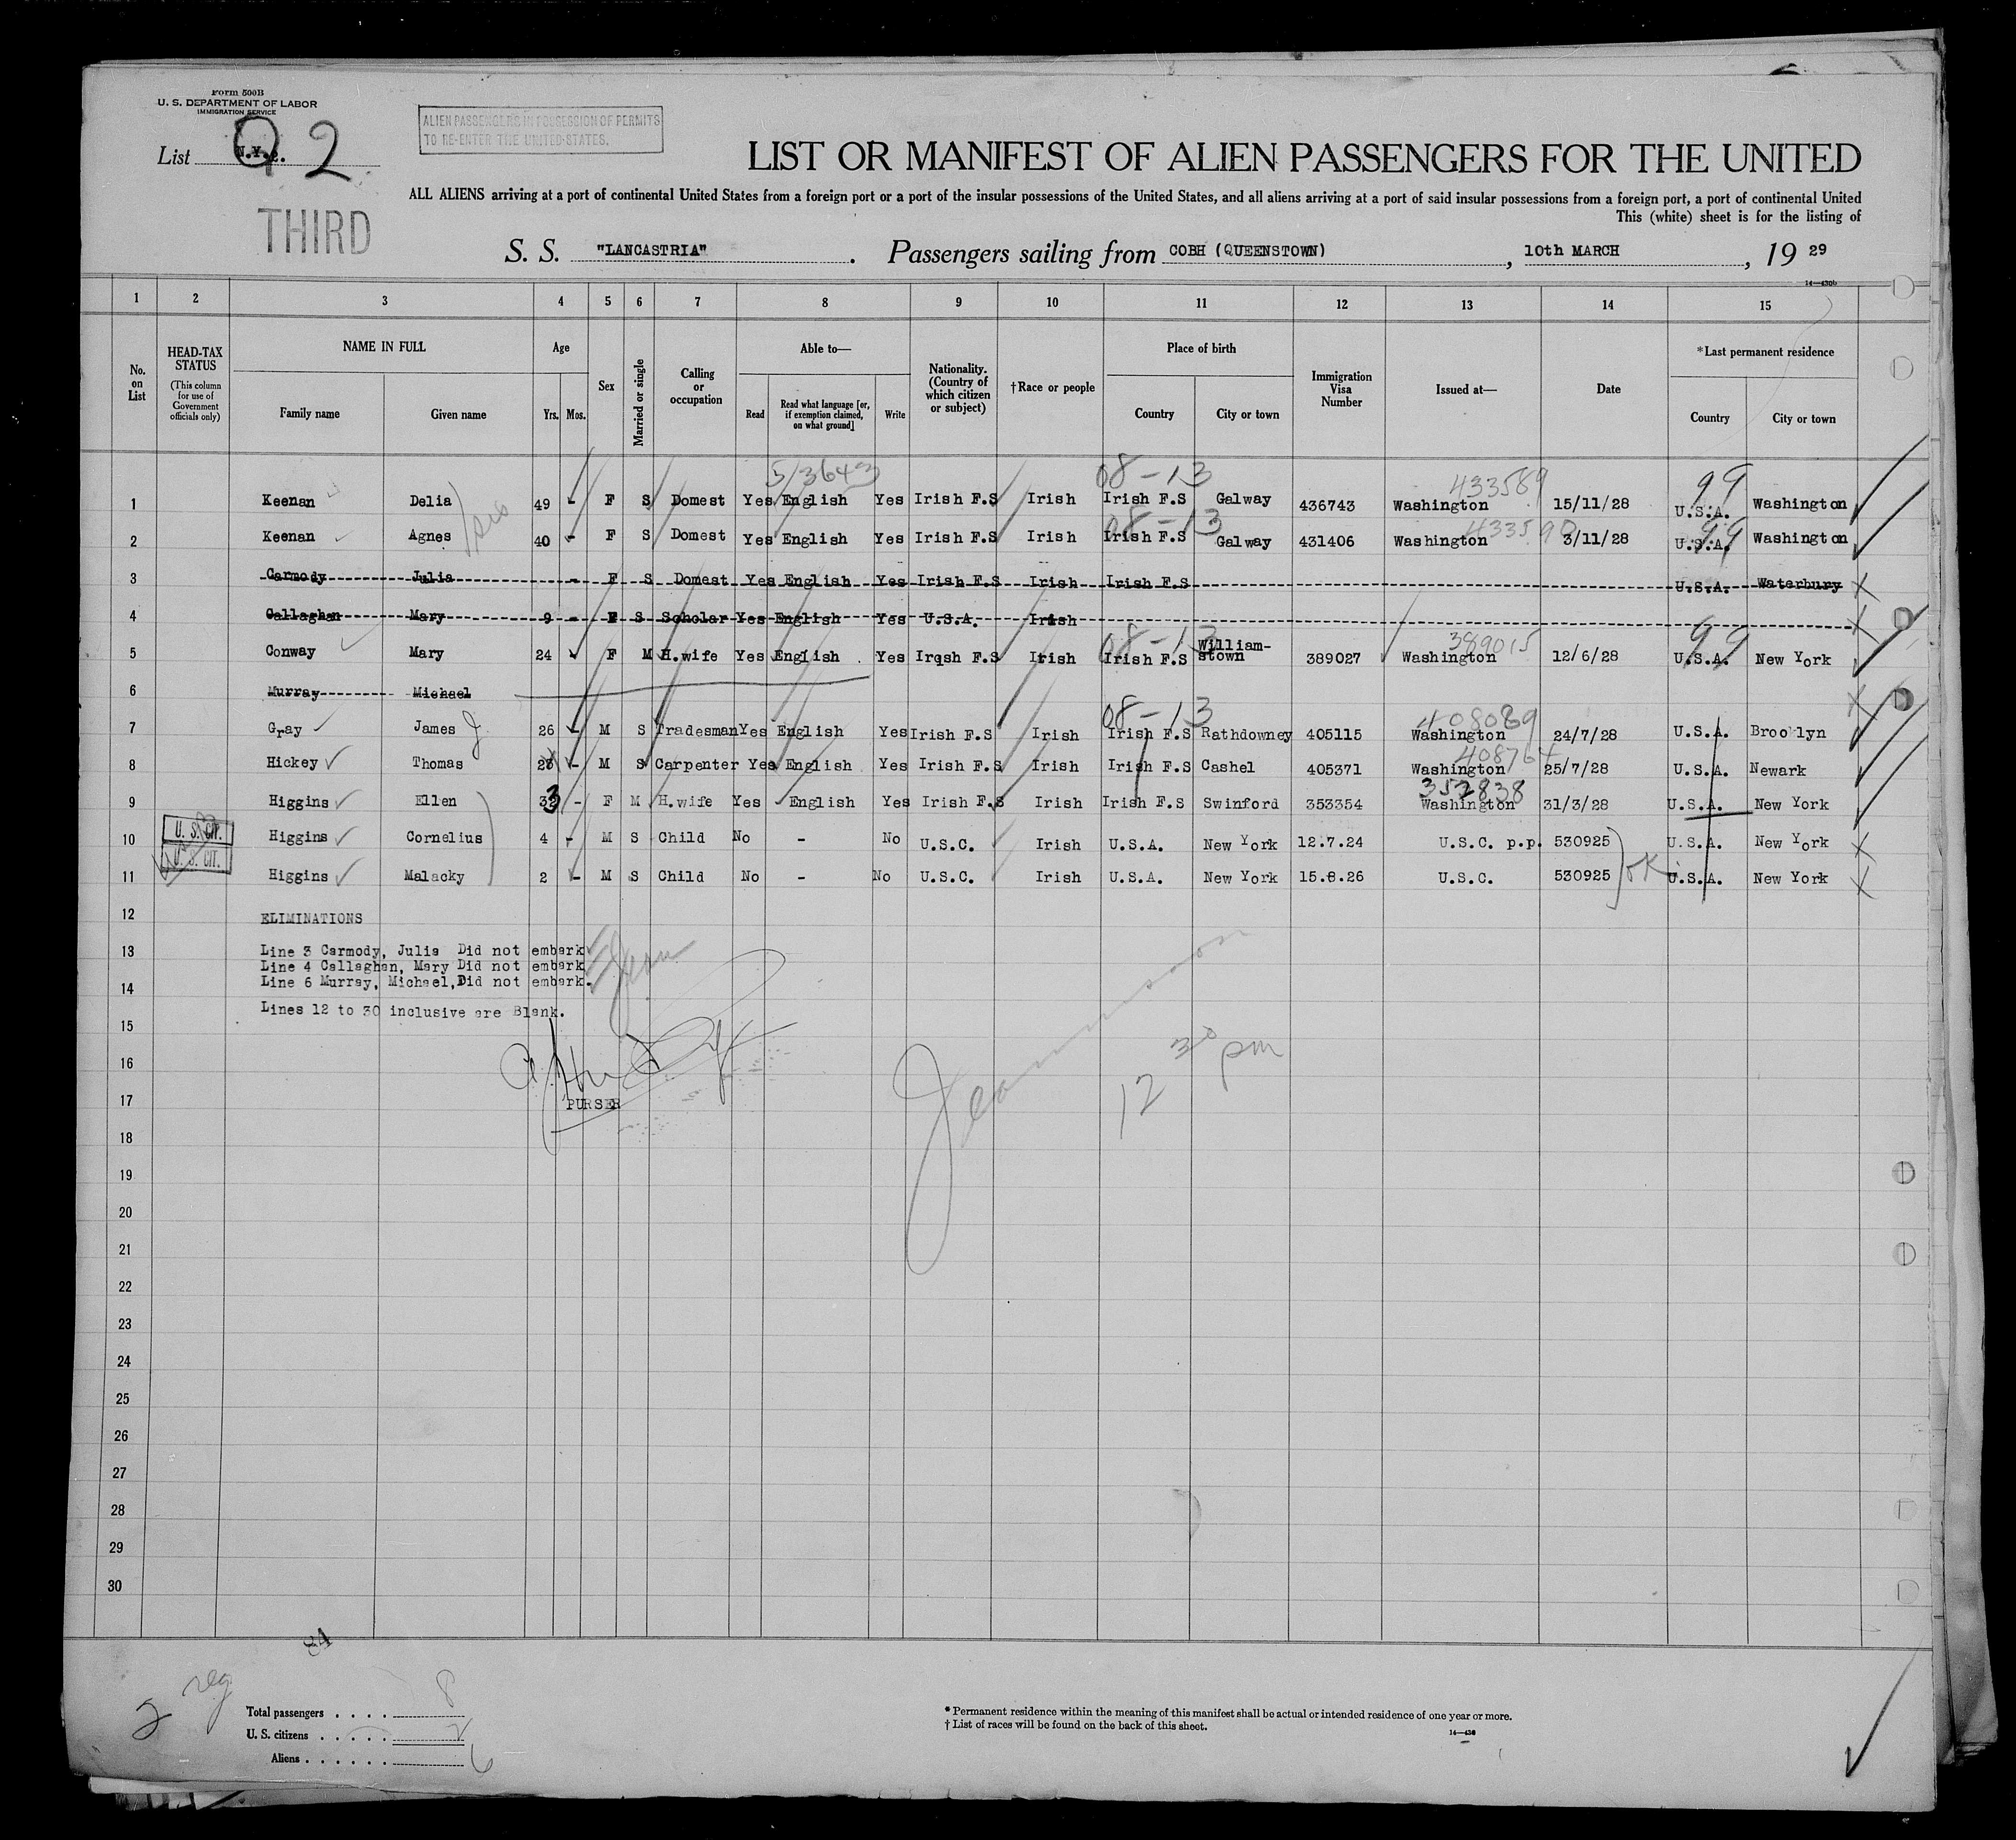 Form 500B
U. S. DEPARTMENT OF LABOR
IMMIGRATION SERVICE
List N.Y.2. 2
ALIEN PASSENGERS IN POSSESSION OF PERMITS
TO RE-ENTER THE UNITED STATES.
THIRD
LIST OR MANIFEST OF ALIEN PASSENGERS FOR THE UNITED
ALL ALIENS arriving at a port of continental United States from a foreign port or a port of the insular possessions of the United States, and all aliens arriving at a port of said insular possessions from a foreign port, a port of continental United
This (white) sheet is for the listing of
S. S. "LANCASTRIA". Passengers sailing from COBH (QUEENSTOWN), 10th MARCH, 1929
14—430b
1 2 3 4 5 6 7 8 9 10 11 12 13 14 15
No. on List
HEAD-TAX STATUS
(This column for use of Government officials only)
NAME IN FULL
Family name Given name
Age
Yrs. Mos.
Sex
Married or single
Calling or occupation
Able to—
Read
Read what language [or, if exemption claimed, on what ground]
Write
Nationality. (Country of which citizen or subject)
†Race or people
Place of birth
Country City or town
Immigration Visa Number
Issued at—
Date
*Last permanent residence
Country City or town
5/3643 08-13 433589 99
1 Keenan Delia 49 - F S Domest Yes English Yes Irish F.S Irish Irish F.S Galway 436743 Washington 15/11/28 U.S.A. Washington
08-13 433590 99
2 Keenan Agnes 40 - F S Domest Yes English Yes Irish F.S Irish Irish F.S Galway 431406 Washington 3/11/28 U.S.A. Washington
3 Carmody Julia - F S Domest Yes English Yes Irish F.S Irish Irish F.S U.S.A. Waterbury
4 Callaghan Mary 9 - F S Scholar Yes English Yes U.S.A. Irish
08-13 389015 99
5 Conway Mary 24 - F M H.wife Yes English Yes Irqsh F.S Irish Irish F.S William-stown 389027 Washington 12/6/28 U.S.A. New York
6 Murray Michael
08-13 408089
7 Gray James J 26 - M S Tradesman Yes English Yes Irish F.S Irish Irish F.S Rathdowney 405115 Washington 24/7/28 U.S.A. Brooklyn
408764
8 Hickey Thomas 28 - M S Carpenter Yes English Yes Irish F.S Irish Irish F.S Cashel 405371 Washington 25/7/28 U.S.A. Newark
352838
9 Higgins Ellen 33 - F M H.wife Yes English Yes Irish F.S Irish Irish F.S Swinford 353354 Washington 31/3/28 U.S.A. New York
10 U. S. CIT. Higgins Cornelius 4 - M S Child No - No U.S.C. Irish U.S.A. New York 12.7.24 U.S.C. p.p. 530925 U.S.A. New York
11 U. S. CIT. Higgins Malacky 2 - M S Child No - No U.S.C. Irish U.S.A. New York 15.8.26 U.S.C. 530925 OK U.S.A. New York
12 ELIMINATIONS
13 Line 3 Carmody, Julia Did not embark
Line 4 Callaghan, Mary Did not embark
Line 6 Murray, Michael, Did not embark.
14
Lines 12 to 30 inclusive are Blank.
15
16
12 30 pm
17 PURSER
18
19
20
21
22
23
24
25
26
27
28
29
30
84
2 reg
Total passengers . . . . 8
U. S. citizens . . . . . 2
Aliens . . . . . . 6
* Permanent residence within the meaning of this manifest shall be actual or intended residence of one year or more.
† List of races will be found on the back of this sheet.
14—430